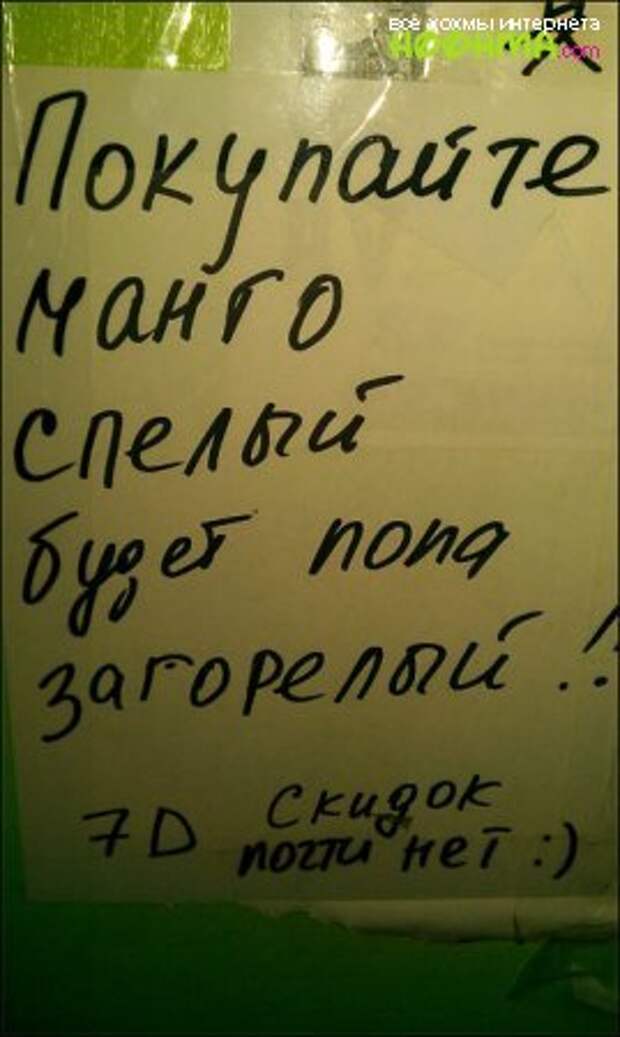 все хохмы интернета
Покупайте
манго
спелый
будет попа
загорелый!!
7D Скидок
почти нет :)